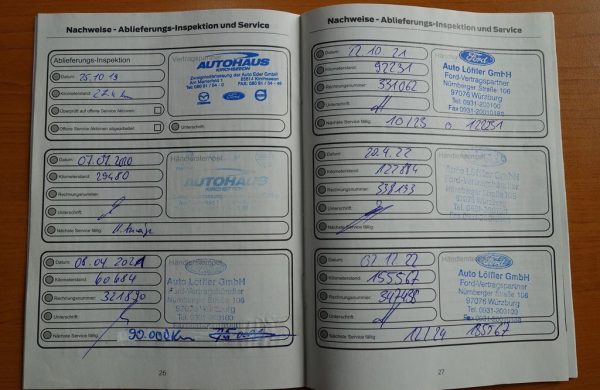 Nachweise - Ablieferungs-Inspektion und Service
Ablieferungs-Inspektion
Datum: 25.10.19
Kilometerstand:
Überprüft auf offene Service Aktionen:
Offene Service Aktionen abgearbeitet:
AUTOHAUS
KIRCHSEEON
Zweigniederlassung der Auto Eder GmbH
85614 Kirchseeon
Unterschrift:
Datum: 07.07.2020
Kilometerstand: 29480
Rechnungsnummer:
Unterschrift:
Nächste Service fällig:
Händlerstempel
AUTOHAUS
KIRCHSEEON
Datum: 08.04 2021
Kilometerstand: 60684
Rechnungsnummer: 321870
Unterschrift:
Nächste Service fällig: 90.000km
Händlerstempel
Ford
Auto Löffler GmbH
Ford-Vertragspartner
Nürnberger Straße 106
97076 Würzburg
Tel. 0931-200100
26
Nachweise - Ablieferungs-Inspektion und Service
Datum: 12 10 21
Kilometerstand: 92231
Rechnungsnummer: 531062
Unterschrift:
Nächste Service fällig: 10/23 o. 122231
Ford
Auto Löffler GmbH
Ford-Vertragspartner
Nürnberger Straße 106
97076 Würzburg
Tel. 0931-200100
Datum: 20.4.22
Kilometerstand: 122884
Rechnungsnummer: 538133
Unterschrift:
Nächste Service fällig:
Händlerstempel
Auto Löffler GmbH
Ford-Vertragshändler
Datum: 07 12 22
Kilometerstand: 155567
Rechnungsnummer: 547458
Unterschrift:
Nächste Service fällig: 12/24 185567
Händlerstempel
Auto Löffler GmbH
Ford-Vertragspartner
Nürnberger Straße 106
97076 Würzburg
Tel. 0931-200100
27